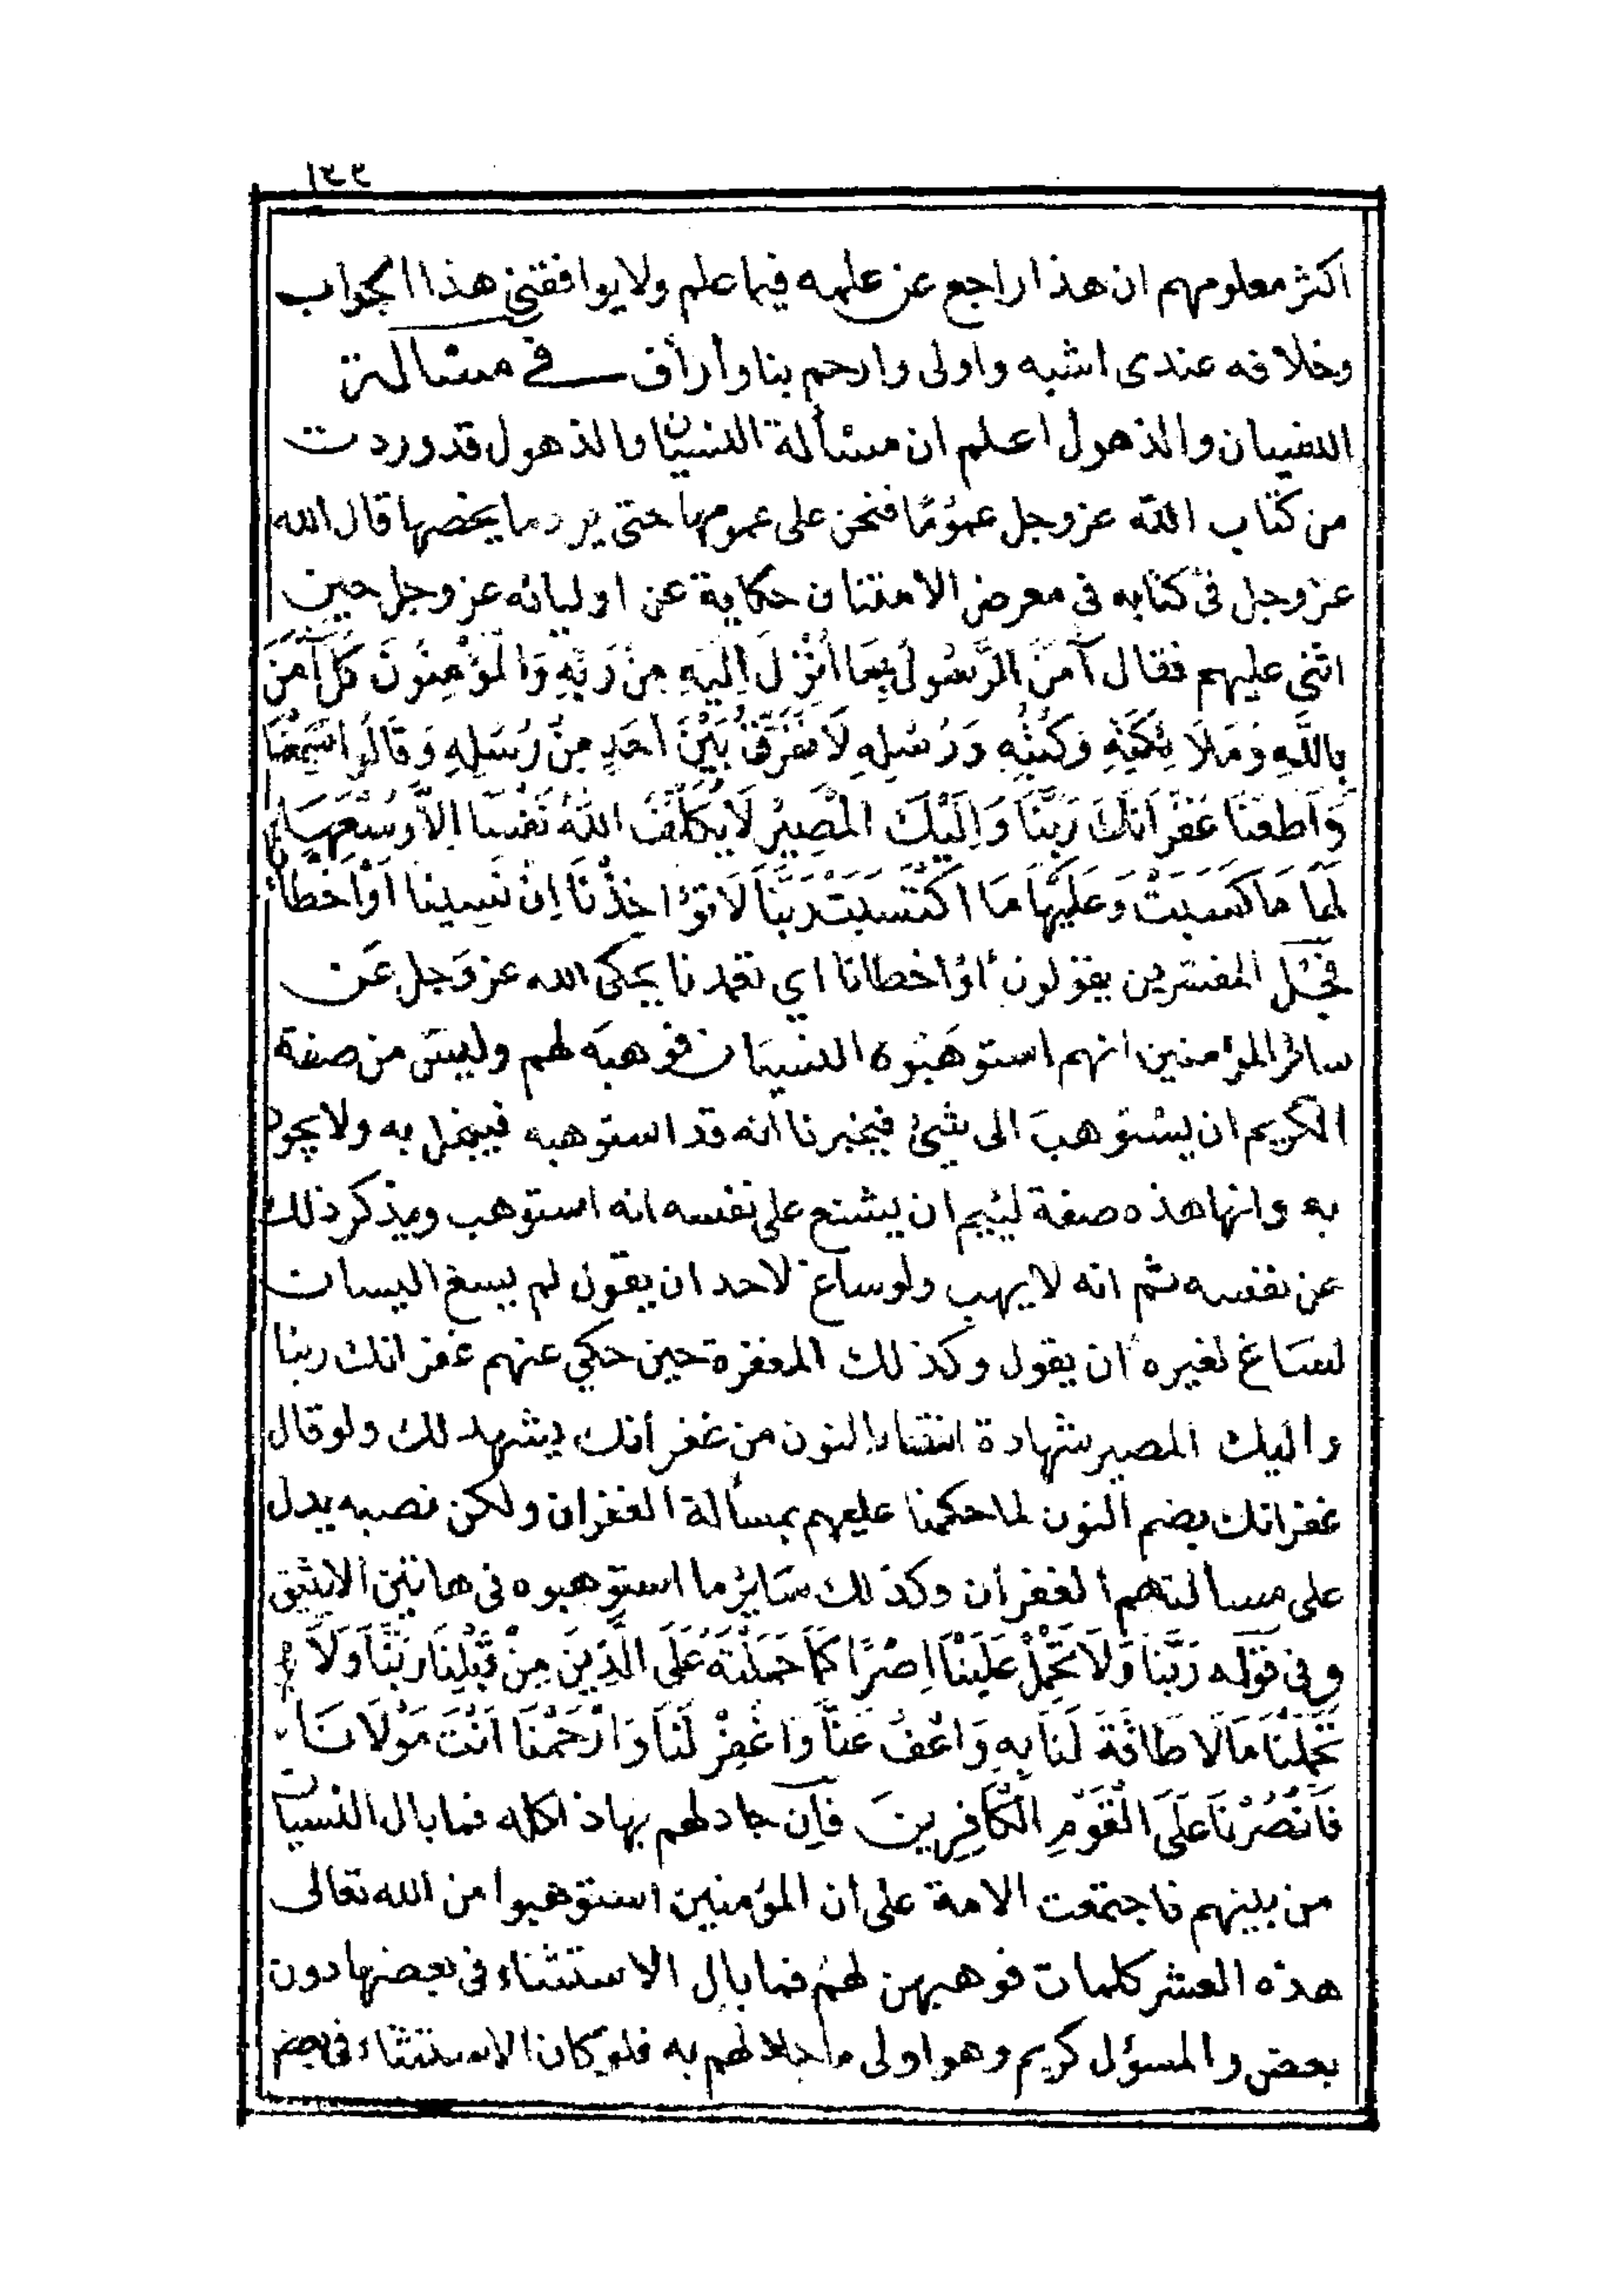 ١٤٤
اكثر معلومهم ان هذا راجع عن علمه فيما علم ولا يوافقني هذا الجواب
وخلافه عندى اشبه واولى وارحم بنا وارأف في مسئالة
النسيان والذهول اعلم ان مسئألة النسيان والذهول قد وردت
من كتاب الله عز وجل عمومًا فنحن على عمومها حتى يرد ما يخصها قال الله
عز وجل فى كتابه فى معرض الامتنان حكاية عن اوليائه عز وجل حين
اثنى عليهم فقال آمَنَ الرَّسُولُ بِمَا اُنْزِلَ اِلَيْهِ مِنْ رَبِّهِ وَالْمُؤْمِنُونَ كُلٌّ آمَنَ
بِاللَّهِ وَمَلَائِكَتِهِ وَكُتُبِهِ وَرُسُلِهِ لَا نُفَرِّقُ بَيْنَ اَحَدٍ مِنْ رُسُلِهِ وَقَالُوا سَمِعْنَا
وَاَطَعْنَا غُفْرَانَكَ رَبَّنَا وَاِلَيْكَ الْمَصِيرُ لَا يُكَلِّفُ اللَّهُ نَفْسًا اِلاَّ وُسْعَهَا
لَهَا مَا كَسَبَتْ وَعَلَيْهَا مَا اكْتَسَبَتْ رَبَّنَا لَا تُؤَاخِذْنَا اِنْ نَسِينَا اَوْ اَخْطَأْنَا
فجل المفسرين يقولون اوْ اخطانا اي تعمدنا يحكى الله عز وجل عن
سائر المؤمنين انهم استوهبوه النسيان فوهبه لهم وليس من صفة
الكريم ان يستوهب الى شئ فيخبرنا انه قد استوهبه فيبخل به ولا يجود
به وانها هذه صفة لئيم ان يشنع على نفسه انه استوهب ويذكر ذلك
عن نفسه ثم انه لا يهب ولو ساغ لاحد ان يقول لم يسغ اليسان
لساغ لغيره ان يقول وكذلك المغفرة حين حكي عنهم غفرانك ربنا
واليك المصير شهادة انتصاب النون من غفرانك يشهد لك ولو قال
غفرانك بضم النون لما حكمنا عليهم بمسألة الغفران ولكن نصبه يدل
على مسالتهم الغفران وكذلك سائر ما استوهبوه فى هاتين الايتين
وفى قوله رَبَّنَا وَلَا تَحْمِلْ عَلَيْنَا اِصْرًا كَمَا حَمَلْتَهُ عَلَى الَّذِينَ مِنْ قَبْلِنَا رَبَّنَا وَلَا
تُحَمِّلْنَا مَا لَا طَاقَةَ لَنَا بِهِ وَاعْفُ عَنَّا وَاغْفِرْ لَنَا وَارْحَمْنَا اَنْتَ مَوْلَانَا
فَانْصُرْنَا عَلَى الْقَوْمِ الْكَافِرِينَ فان جاد لهم بهاذا كله فما بال النسيان
من بينهم فاجتمعت الامة على ان المؤمنين استوهبوا من الله تعالى
هذه العشر كلمات فوهبهن لهم فما بال الاستثناء فى بعضها دون
بعض والمسؤل كريم وهو اولى ما جاد لهم به فلو كان الاستثناء فى بعض